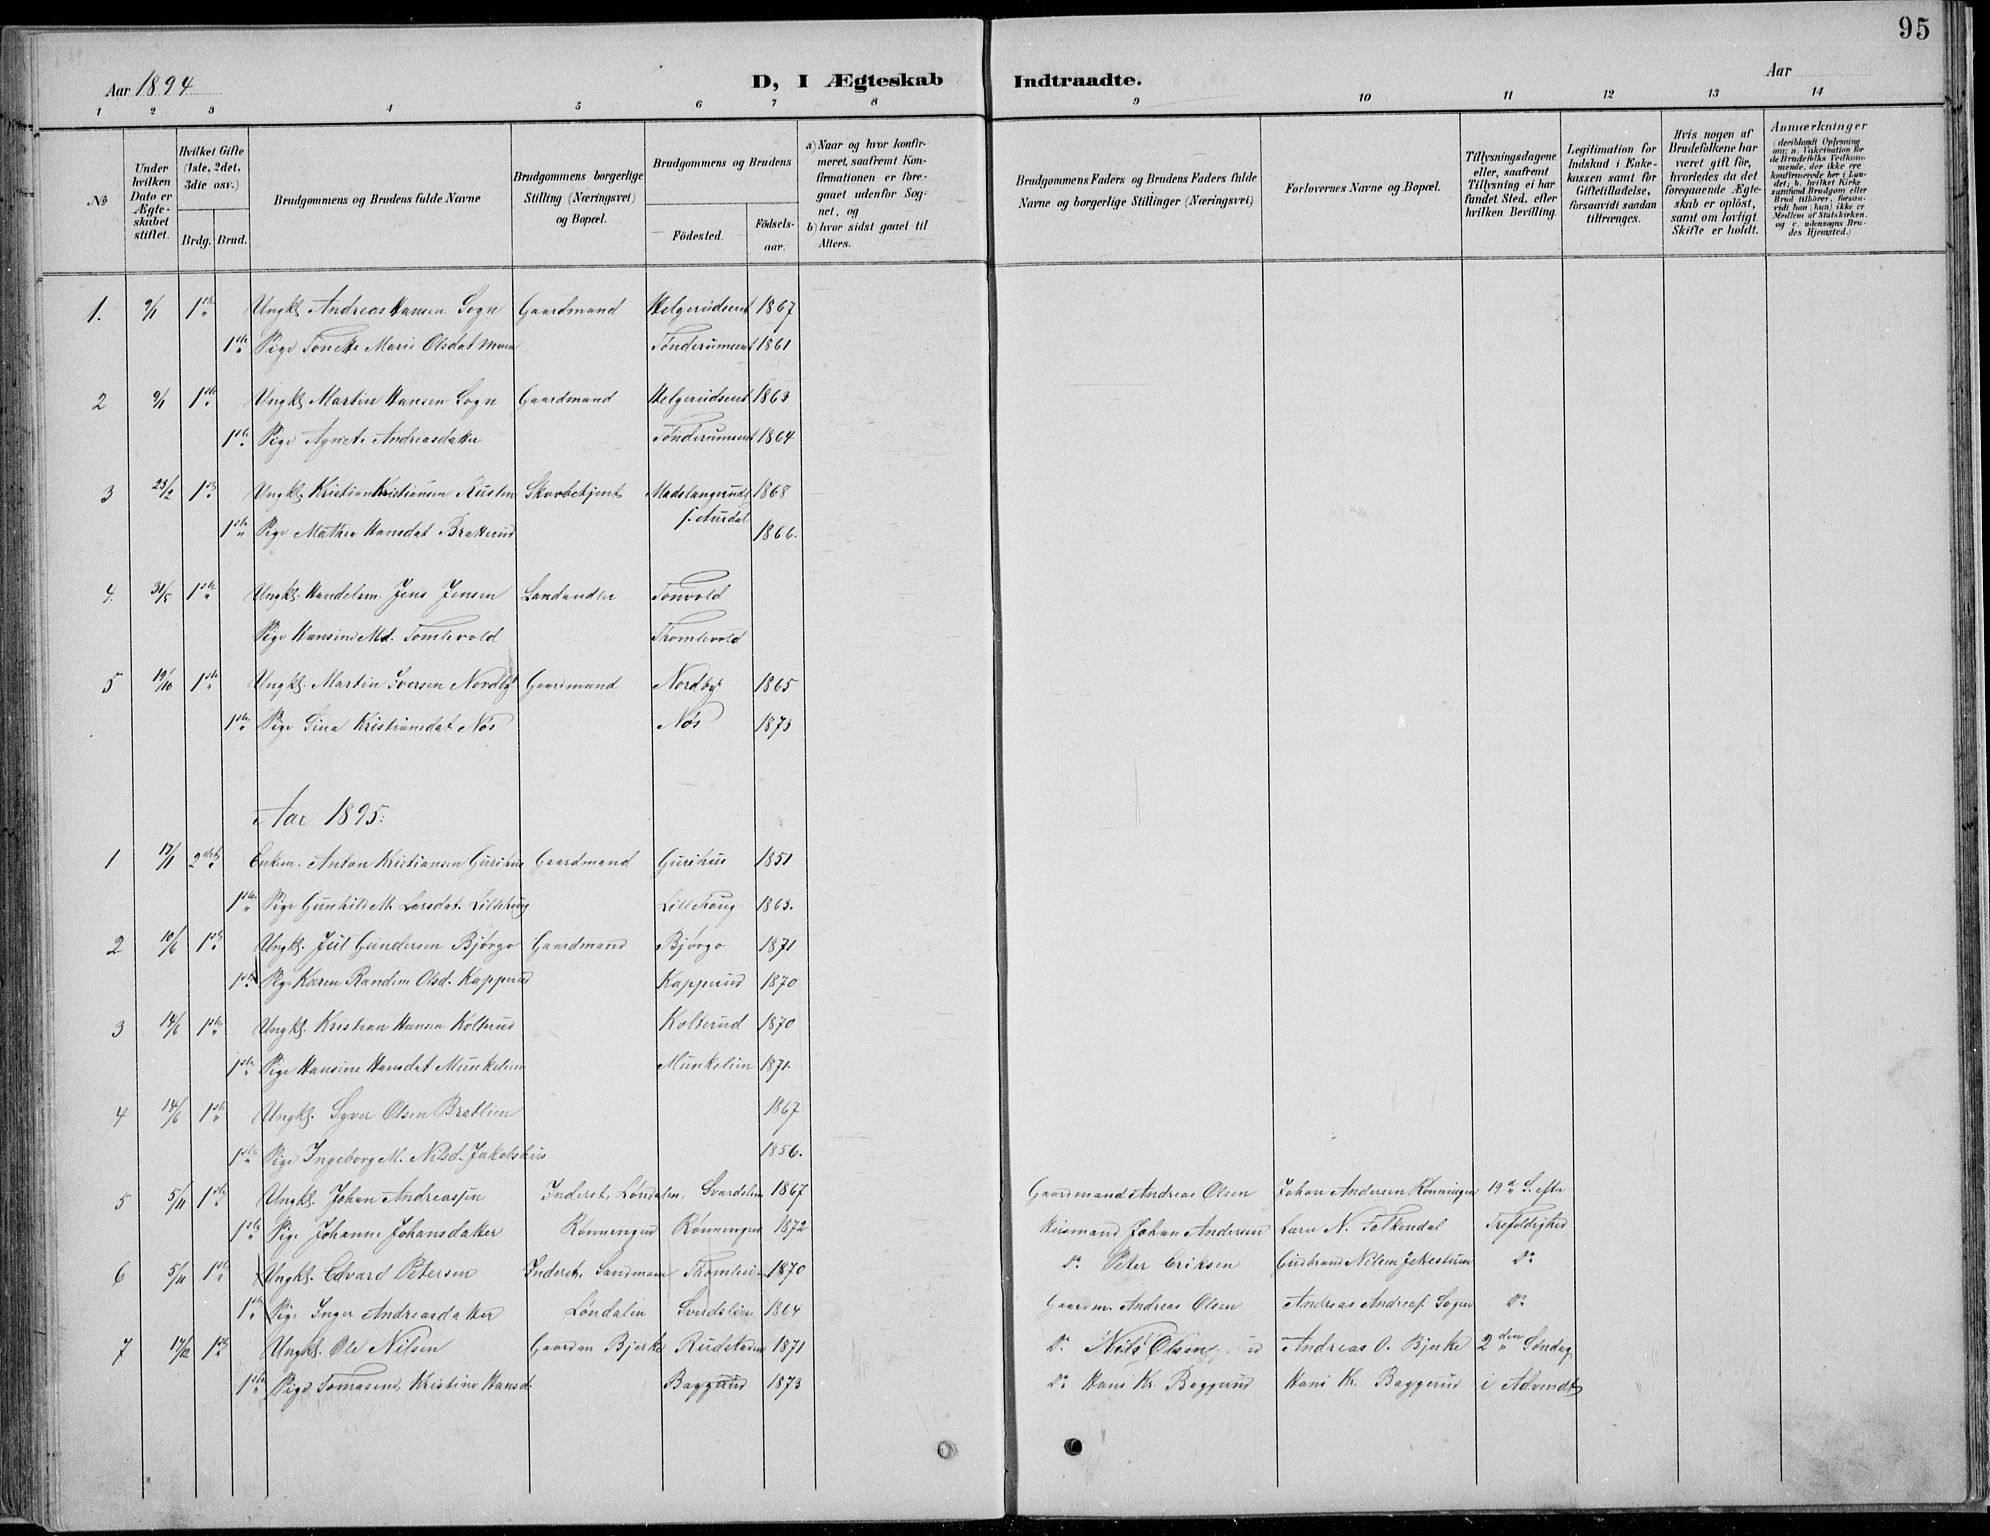 95
Aar 1894 D, I Ægteskab Indtraadte. Aar
1 2 3 4 5 6 7 8 9 10 11 12 13 14
No
Under hvilken Dato er Ægteskabet stiftet.
Hvilket Gifte (1ste, 2det, 3die osv.)
Brdg. Brud.
Brudgommens og Brudens fulde Navne
Brudgommens borgerlige Stilling (Næringsvei) og Bopæl.
Brudgommens og Brudens
Födested. Födsels-aar.
a) Naar og hvor konfirmeret, saafremt Konfirmationen er foregaaet udenfor Sognet, og
b) hvor sidst gaaet til Alters.
Brudgommens Faders og Brudens Faders fulde Navne og borgerlige Stillinger (Næringsvei)
Forlovernes Navne og Bopæl.
Tillysningsdagene eller, saafremt Tillysning ei har fundet Sted, efter hvilken Bevilling.
Legitimation for Indskud i Enkekassen samt for Giftetilladelse, forsaavidt saadan tiltrænges.
Hvis nogen af Brudefolkene har været gift før, hvorledes da det foregaaende Ægteskab er opløst, samt om lovligt Skifte er holdt.
Anmærkninger (deriblandt Oplysning om: a. Vakcination for de Brudefolks Vedkommende, der ikke ere konfirmerede her i Landet; b. hvilket Kirkesamfund Brudgom eller Brud tilhører, forsaavidt han (hun) ikke er Medlem af Statskirken, og c. udensogns Brudes Hjemsted.)
1. 9/1 1ste Ungkl. Andreas Hansen Sogn Gaardmand Helgerudseie 1867
1ste Pige Tonette Marie Olsdat Moen 1861
2 9/1 1ste Ungkl. Martin Hansen Sogn Gaardmand Helgerudseie 1863
1ste Pige Agnete Andreasdatter 1864
3 23/2 1ste Ungkl. Kristian Kristiansen Rusten Skovbetjent 1868
1ste Pige Mathea Hansdat Bratterud f. Aurdal 1866.
4. 31/5 1ste Ungkl. Handelsm. Jens Jensen Landhandler Tonvold
Pige Hansine Md. Tomlevold Thomlevold
5 19/10 1ste Ungkl. Martin Iversen Nordby Gaardmand Nordby 1865
1ste Pige Gina Kristiansdat Nøs Nøs 1873
Aar 1895.
1 17/1 2det Enkem. Anton Kristiansen Gurihus Gaardmand Gurihus 1851
1ste Pige Gunhild M. Larsdat. Lillehaug Lillehaug 1863.
2 10/6 1ste Ungkl. Juel Gundersen Bjørgo Gaardmand Bjørgo 1871
1ste Pige Karen Randine Olsd. Kapperud Kapperud 1870
3 14/6 1ste Ungkl. Kristian Hansen Kolterud Kolterud 1870
1ste Pige Hansine Hansdat Munkelien Munkelien 1871.
4 14/6 1ste Ungkl. Syver Olsen Bratlien 1867
1ste Pige Ingeborg M. Nilsd. Jakobshus 1856.
5 5/11 1ste Ungkl. Johan Andreassen Inderst, Løndalen, Sverdslien 1867 Gaardmand Andreas Olsen Johan Andersen Rønningen 19de S. efter
1ste Pige Johanne Johansdatter Rønningen Rønningen 1872 Husmand Johan Andersen Lars N. Falkendal Trefoldighed
6 5/11 1ste Ungkl. Edvard Petersen Inderst, 1870 Do Peter Eriksen Gudbrand Nilsen Do
1ste Pige Inger Andreasdatter Løndalen Sverdslien 1864 Gaardm. Andreas Olsen Andreas Andreas. Sogn Do
7 17/12 1ste Ungkl. Ole Nilsen Gaardm Bjerke Rudstaden 1871 Do Nils Olsen Andreas O. Bjerke 2den Søndag
1ste Pige Tomasine Kristine Hansd. Baggerud 1873 Do Hans Kr. Baggerud Hans Kr. Baggerud i Advendt